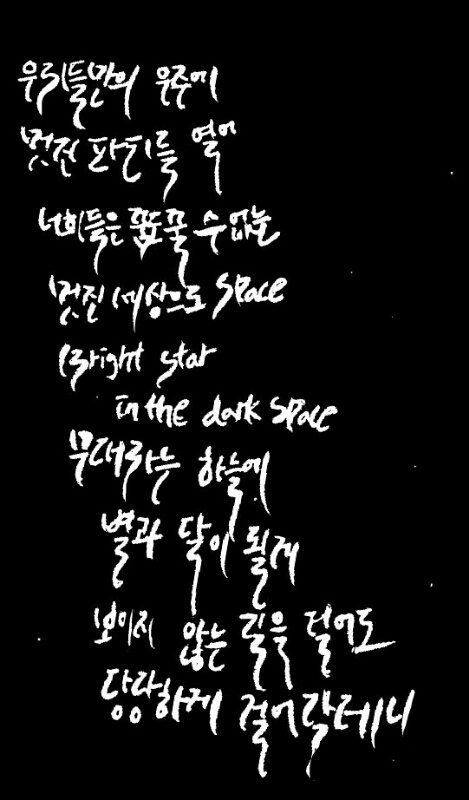 우리들만의 우주에
멋진 파티를 열어
너희들은 꿈꿀 수 없는
멋진 세상으로 space
Bright star
in the dark space
무대라는 하늘에
별과 달이 될게
보이지 않는 길을 걸어도
당당하게 걸어갈테니